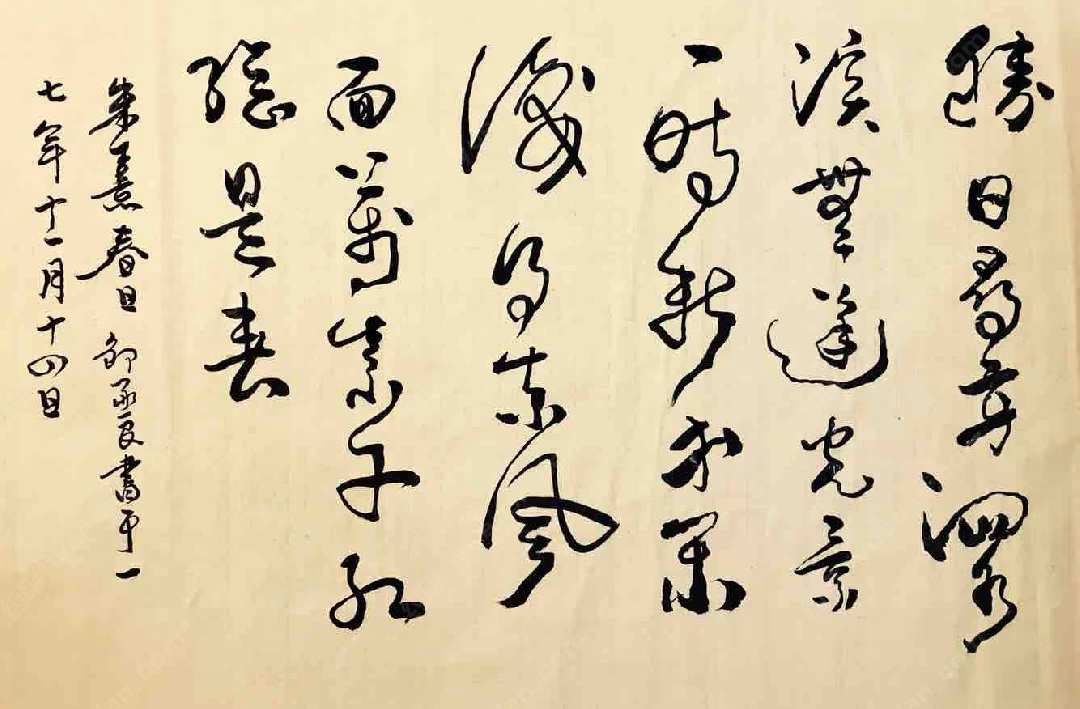 勝日尋芳泗水
濱無邊光景
一時新等閑
識得東風
面萬紫千紅
總是春
朱熹春日 良書于一
七年十一月十四日